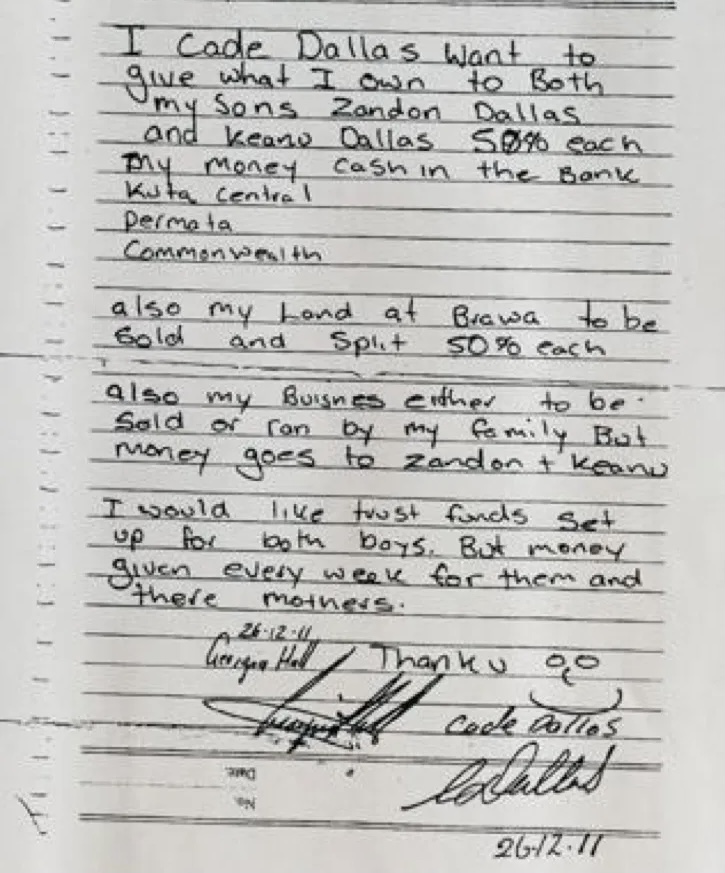 I Cade Dallas want to
give what I own to Both
my Sons Zandon Dallas
and Keanu Dallas 50% each
my money cash in the Bank
Kuta Central
Permata
Commonwealth
also my Land at Brawa to be
Sold and Split 50% each
also my Buisnes either to be
Sold or ran by my family But
money goes to Zandon + Keanu
I would like trust funds set
up for both boys. But money
given every week for them and
there mothers.
26-12-11
Georgia Hall Thank u
Cade Dallas
26-12-11
Date:
No.